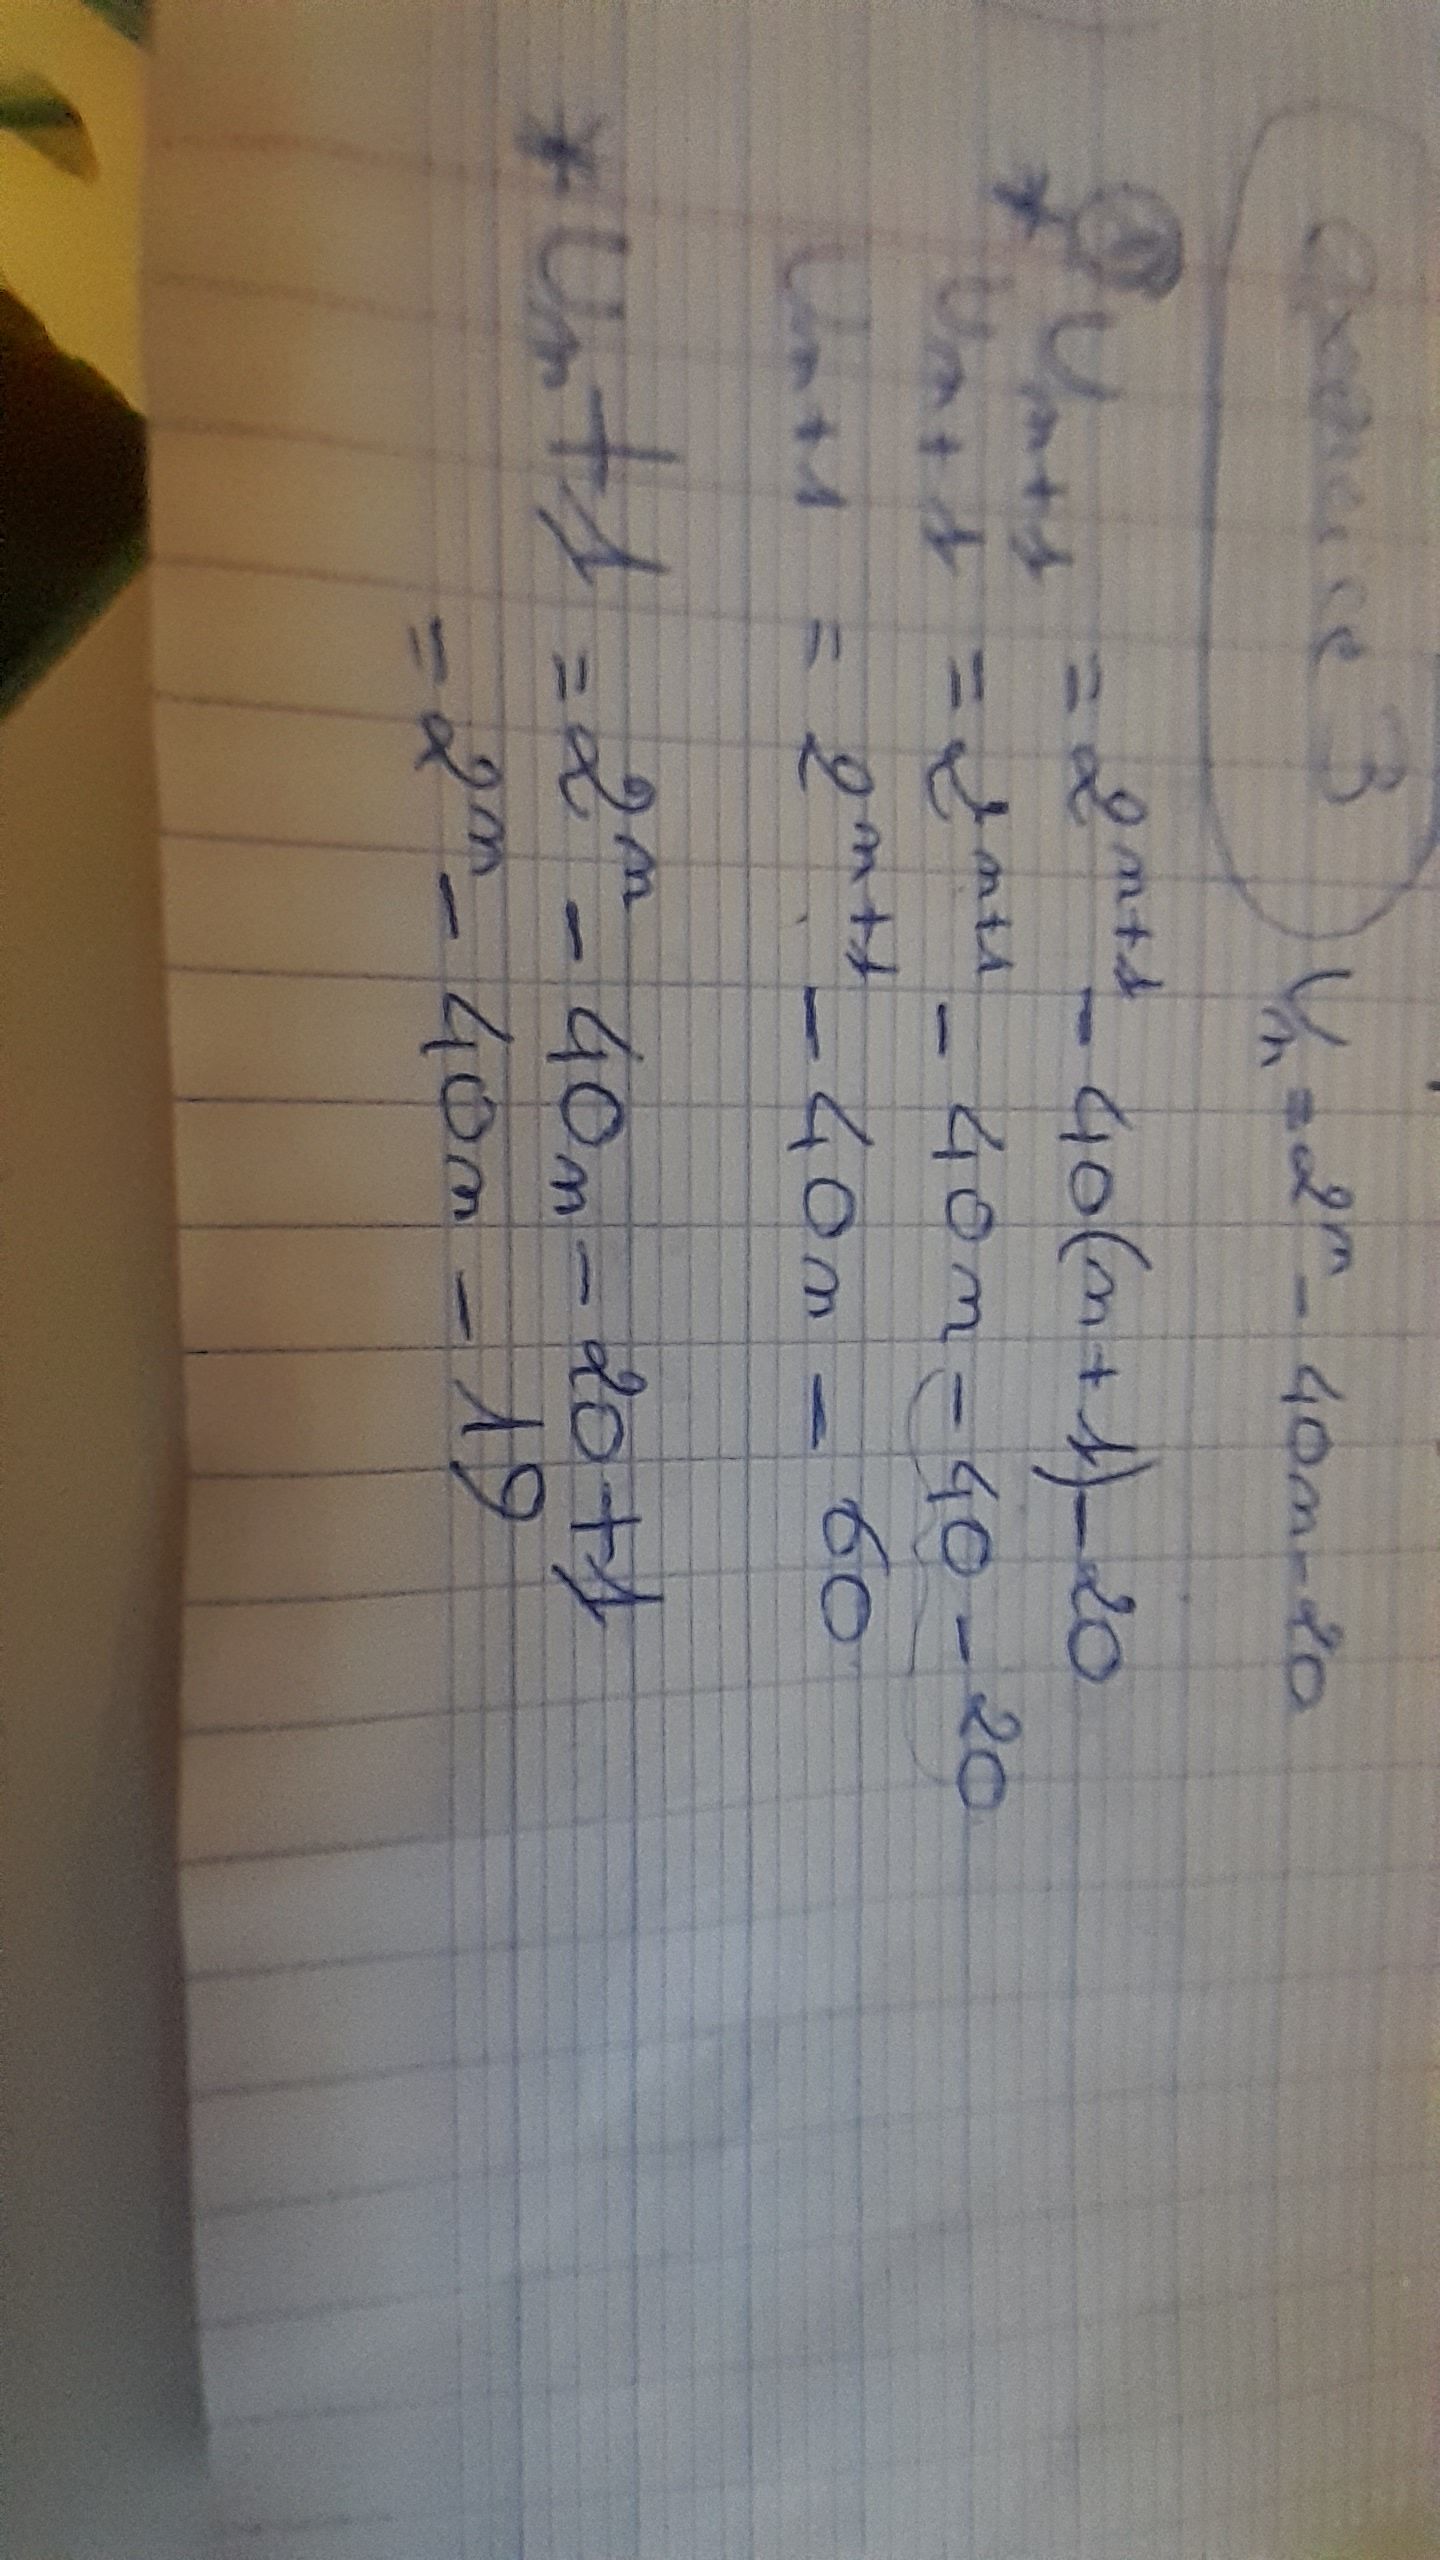 Exercice 3 Un = 2^n - 40n - 20
①
* Un+1 = 2^n+1 - 40(n+1) - 20
Un+1 = 2^n+1 - 40n - 40 - 20
Un+1 = 2^n+1 - 40n - 60
* Un + 1 = 2^n - 40n - 20 + 1
= 2^n - 40n - 19